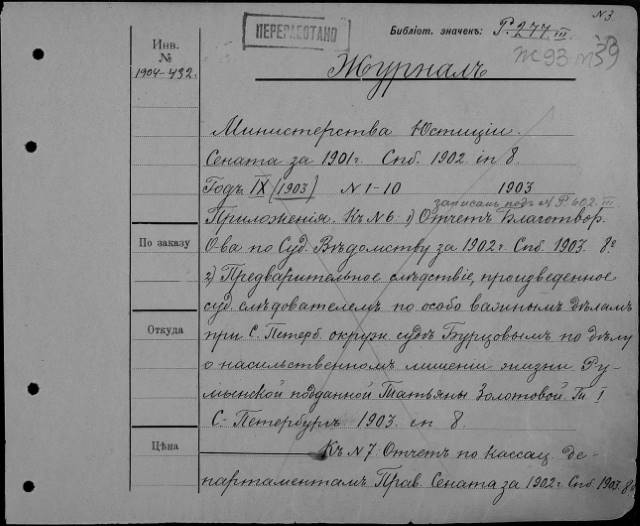 N 3.
ПЕРЕРАБОТАНО
Библіот. значекъ: Р. 277 III
Ж 93
Инв.
№
1904-432.
Журналъ
Министерства Юстиціи.
Сената за 1901 г. Спб. 1902 in 8.
Годъ IX (1903) N 1-10 1903
записанъ подъ N Р. 602 III
Приложенія. Къ N 6. 1) Отчетъ Благотвор.
По заказу
О-ва по Суд. Вѣдомству за 1902 г. Спб. 1903. 8º
2) Предварительное слѣдствіе, произведенное
суд. слѣдователемъ по особо важнымъ дѣламъ
Откуда
при С. Петерб. окружн. судѣ Бурцовымъ по дѣлу
о насильственномъ лишеніи жизни Ру-
мынской подданной Татьяны Золотовой. Т. I
С-Петербургъ 1903. in 8.
Цѣна
Къ N 7. Отчетъ по Кассац. де-
партаментамъ Прав. Сената за 1902 г. Спб. 1903. 8º